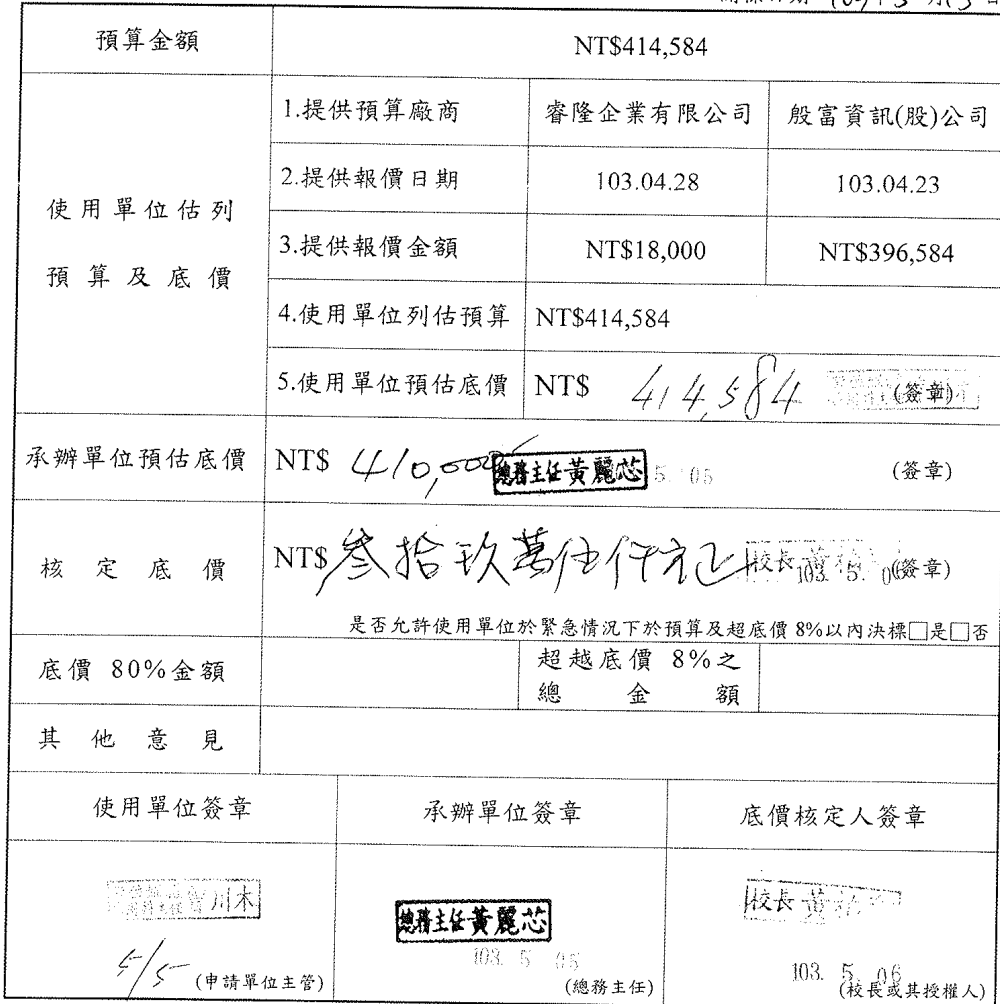 預算金額 NT$414,584
使用單位估列
預算及底價
1.提供預算廠商 睿隆企業有限公司 殷富資訊(股)公司
2.提供報價日期 103.04.28 103.04.23
3.提供報價金額 NT$18,000 NT$396,584
4.使用單位列估預算 NT$414,584
5.使用單位預估底價 NT$ 414,584 (簽章)
承辦單位預估底價 NT$ 410,000 總務主任黃麗芯 5. 05 (簽章)
核定底價 NT$ 參拾玖萬伍仟元正 校長 黃 103. 5. 06 (簽章)
是否允許使用單位於緊急情況下於預算及超底價 8%以內決標□是□否
底價 80%金額 超越底價 8%之
總金額
其他意見
使用單位簽章 承辦單位簽章 底價核定人簽章
川木 總務主任黃麗芯 校長 黃
5/5 (申請單位主管) 103. 5. 05 (總務主任) 103. 5. 06 (校長或其授權人)